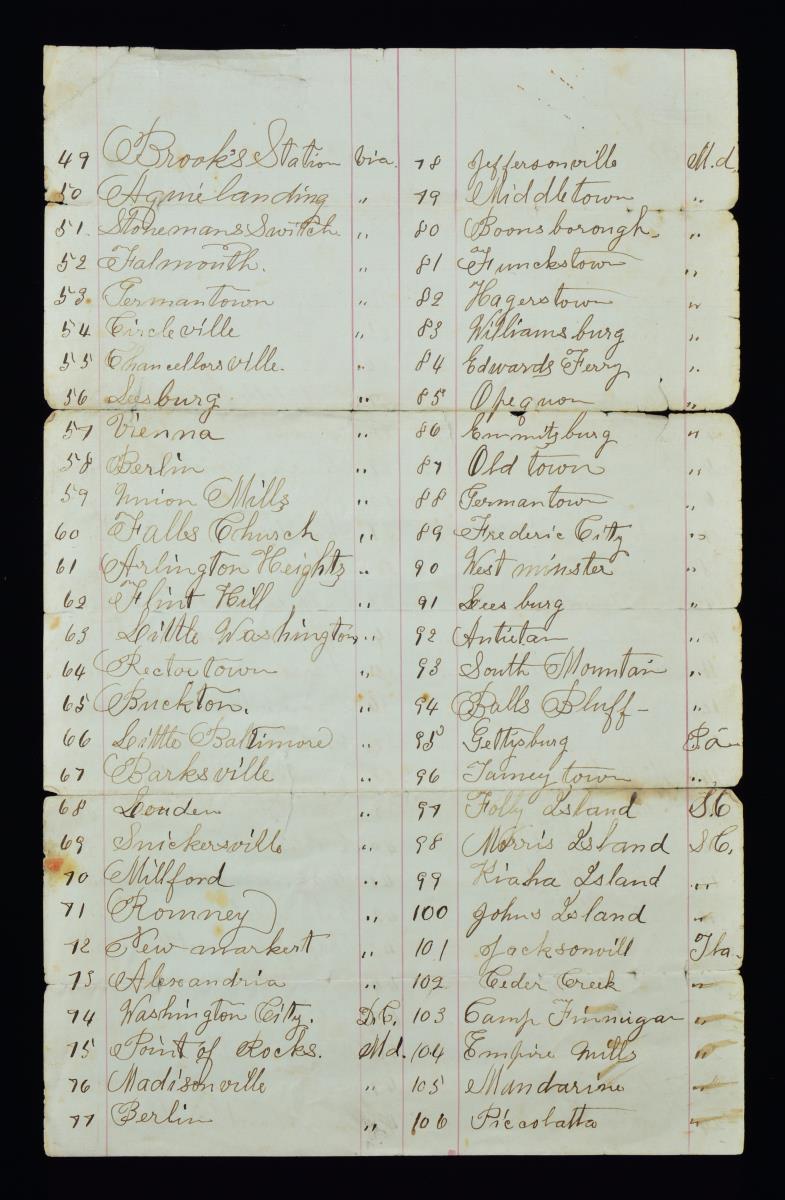 49 Brook's Station Via.
50 Aquielanding "
51. Stonemans Switch "
52 Falmouth. "
53. Germantown "
54 Circleville "
55 Chancellorsville. "
56 Leesburg "
57 Vienna "
58 Berlin "
59 Union Mills "
60 Falls Church "
61 Arlington Heights "
62 Flint Hill "
63 Little Washington "
64 Rectortown "
65 Buckton. "
66 Little Baltimore "
67 Barksville "
68 Louden "
69 Snickersville "
70 Millford "
71 Romney "
72 New markert "
73 Alexandria "
74 Washington City. D.C.
75 Point of Rocks. Md.
76 Madisonville "
77 Berlin "
78 Jeffersonville M.d.
79 Middletown "
80 Boonsborough. "
81 Funckstown "
82 Hagerstown "
83 Williamsburg "
84 Edwards Ferry "
85 Opequon "
86 Emmitzburg "
87 Old town "
88 Germantown "
89 Frederic City "
90 Westminster "
91 Leesburg "
92 Antietan "
93 South Mountain "
94 Balls Bluff "
95 Gettysburg Pa
96 Taneytown "
97 Folly Island S.C
98 Morris Island S.C.
99 Kiaha Island "
100 Johns Island "
101 Jacksonvill Fla.
102 Ceder Creek "
103 Camp Finnugar "
104 Empire Mills "
105 Mandarine "
106 Piccolatta "